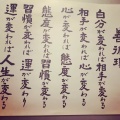 善循環
自分が変われば相手が変わる
相手が変われば心が変わる
心が変われば態度が変わる
態度が変われば習慣が変わる
習慣が変われば運が変わる
運が変われば人生が変わる